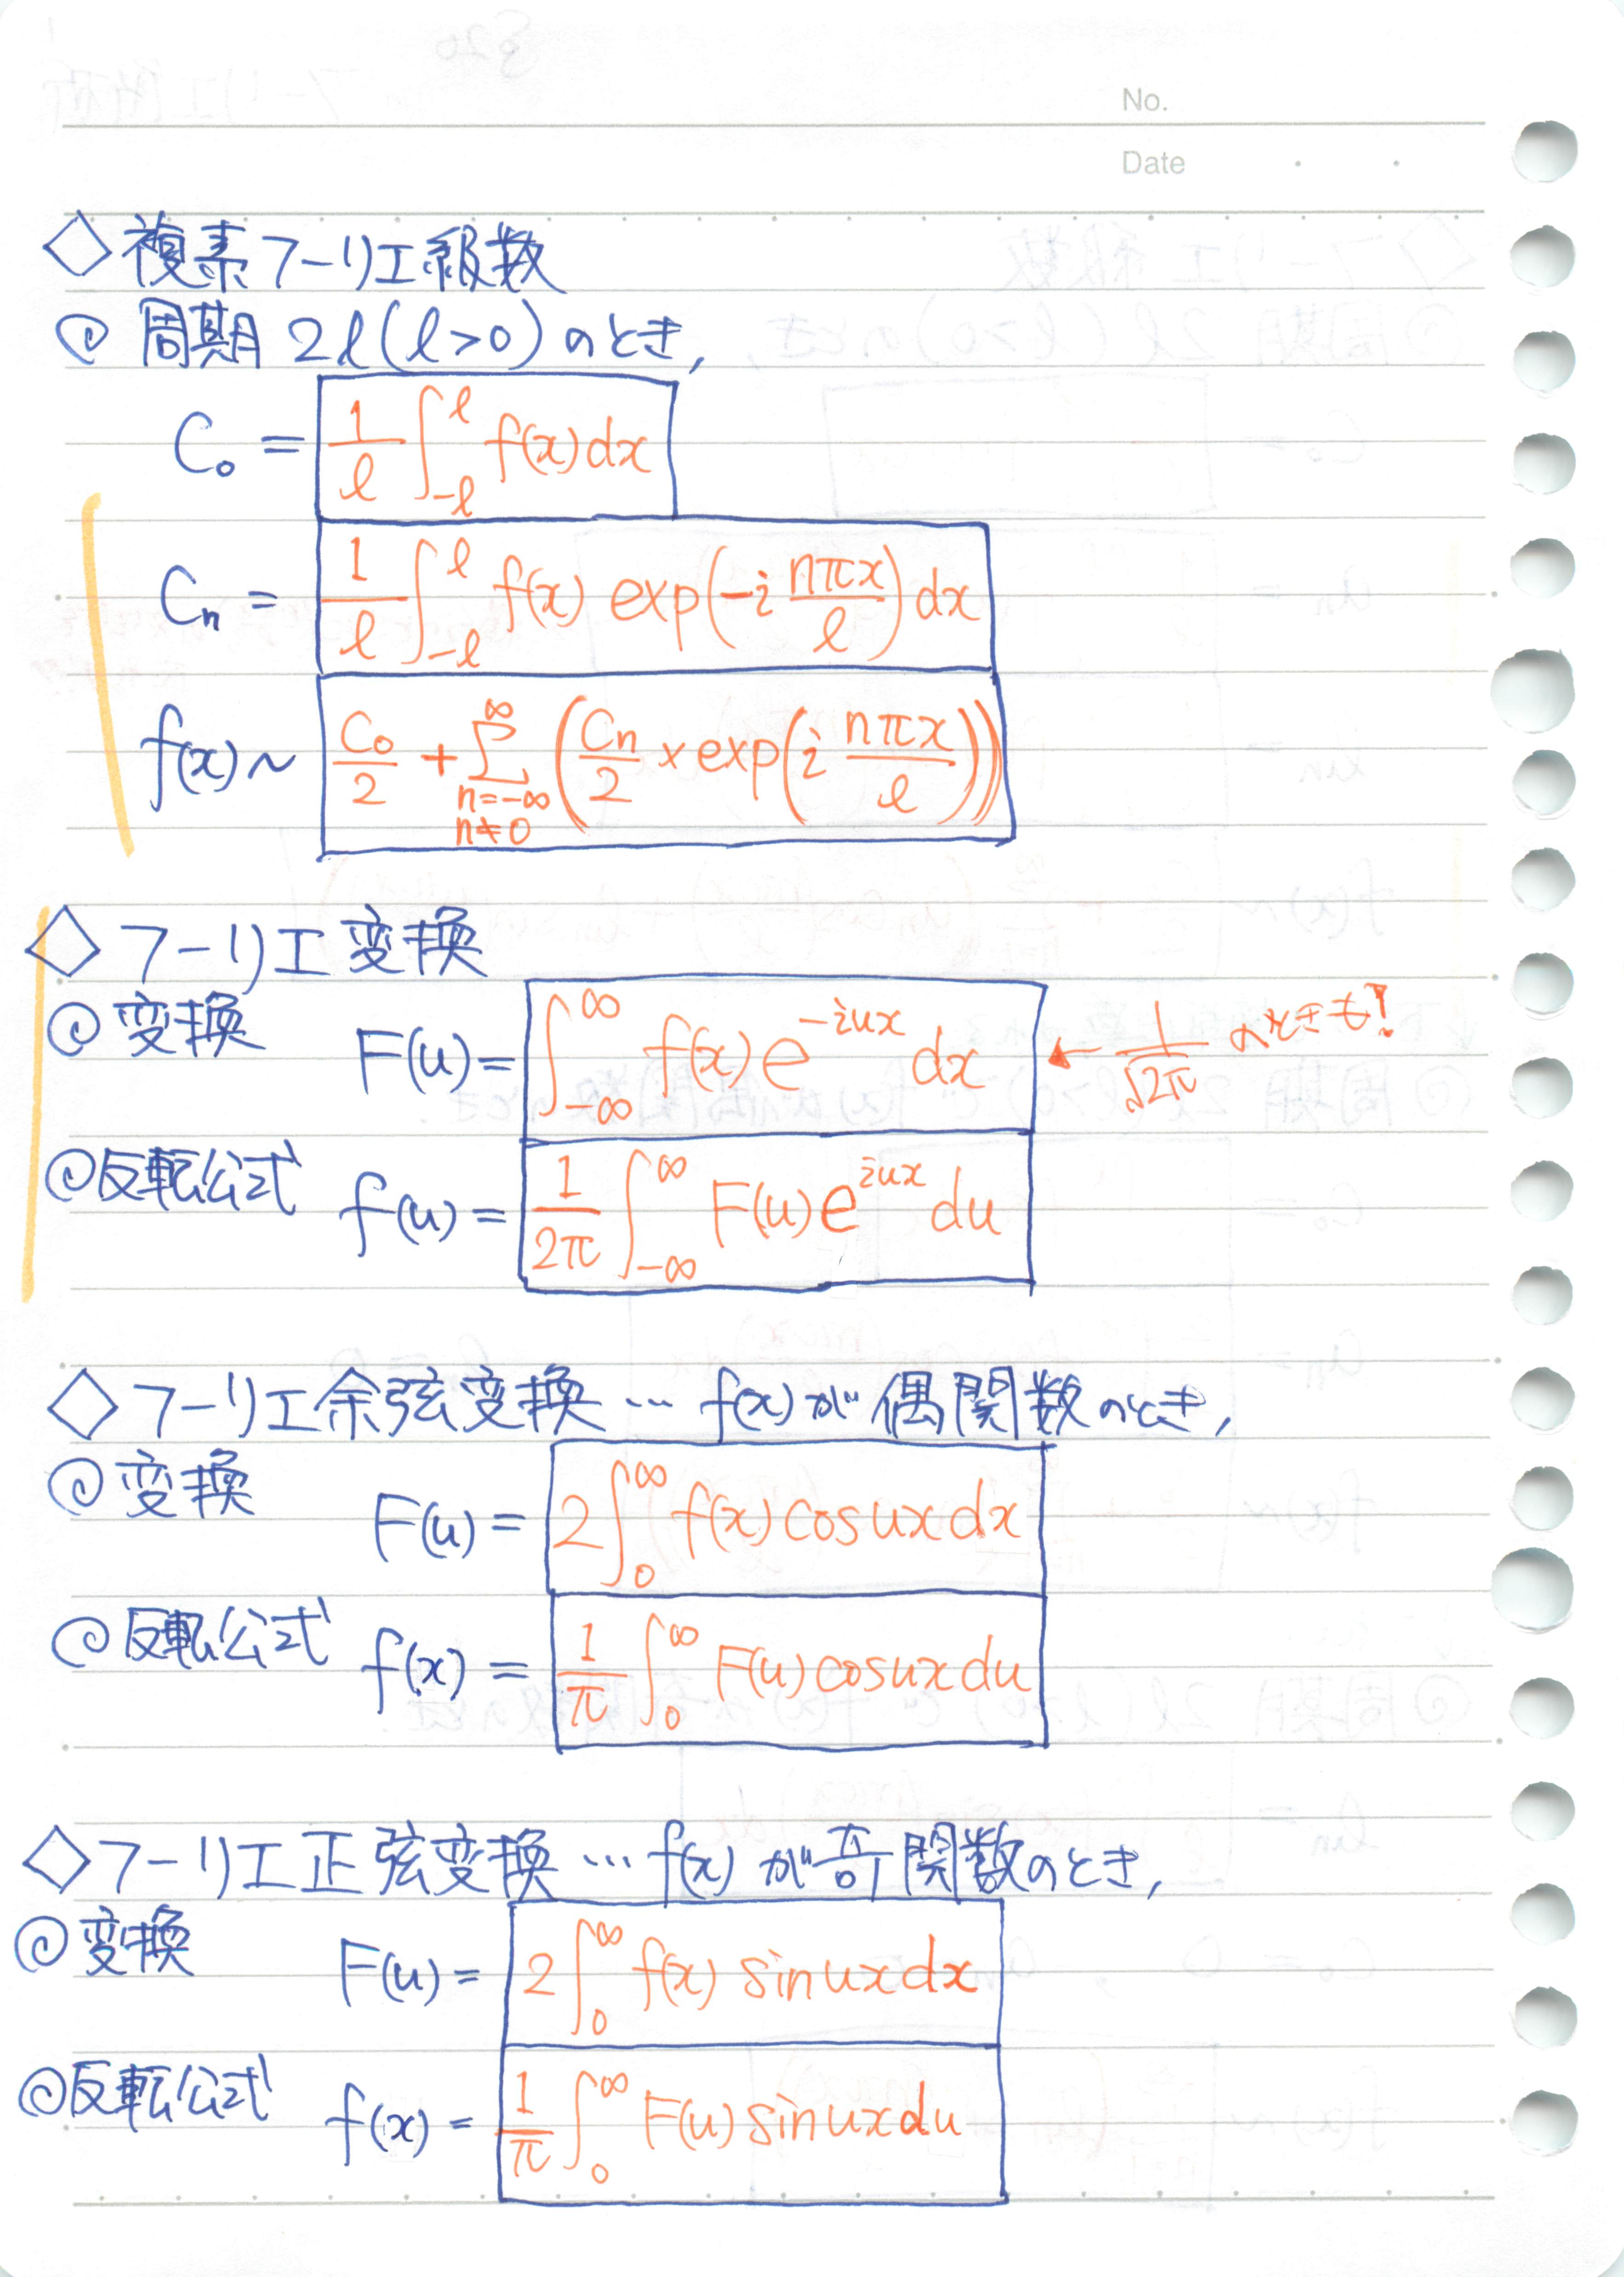 No.
Date
◇複素フーリエ級数
◎ 周期 2ℓ(ℓ>0)のとき,
C₀ = 1/ℓ ∫_{-ℓ}^{ℓ} f(x)dx
Cₙ = 1/ℓ ∫_{-ℓ}^{ℓ} f(x) exp(-i nπx/ℓ)dx
f(x)~ C₀/2 + Σ_{n=-∞, n≠0}^{∞} (Cₙ/2 × exp(i nπx/ℓ))
◇フーリエ変換
◎変換 F(u) = ∫_{-∞}^{∞} f(x)e^{-iux}dx ← 1/√2π のときも!
◎反転公式 f(u) = 1/2π ∫_{-∞}^{∞} F(u)e^{iux}du
◇フーリエ余弦変換…f(x)が偶関数のとき,
◎変換 F(u) = 2∫_{0}^{∞} f(x)cosuxdx
◎反転公式 f(x) = 1/π ∫_{0}^{∞} F(u)cosuxdu
◇フーリエ正弦変換…f(x)が奇関数のとき,
◎変換 F(u) = 2∫_{0}^{∞} f(x) sinuxdx
◎反転公式 f(x) = 1/π ∫_{0}^{∞} F(u)sinuxdu